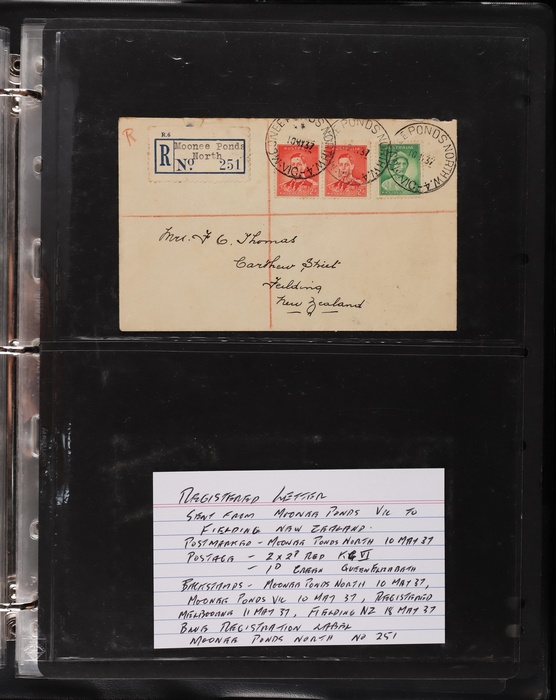 R
R.6
R No 251
Moonee Ponds
North
MOONEE PONDS NORTH W.4 - VIC
10MY37
E PONDS NORTH W.4 - VIC
E PONDS NORTH W.4 - VIC
Mrs. F C. Thomas
Carthew Street
Feilding
New Zealand
REGISTERED LETTER
SENT FROM MOONEE PONDS VIC TO
FIELDING NEW ZEALAND.
POSTMARKED - MOONEE PONDS NORTH 10 MAY 37
POSTAGE - 2 x 2D RED KG VI
- 1D GREEN QUEEN ELIZABETH
BACKSTAMPS - MOONEE PONDS NORTH 10 MAY 37,
MOONEE PONDS VIC 10 MAY 37, REGISTERED
MELBOURNE 11 MAY 37, FIELDING NZ 18 MAY 37
BLUE REGISTRATION LABEL
MOONEE PONDS NORTH NO 251